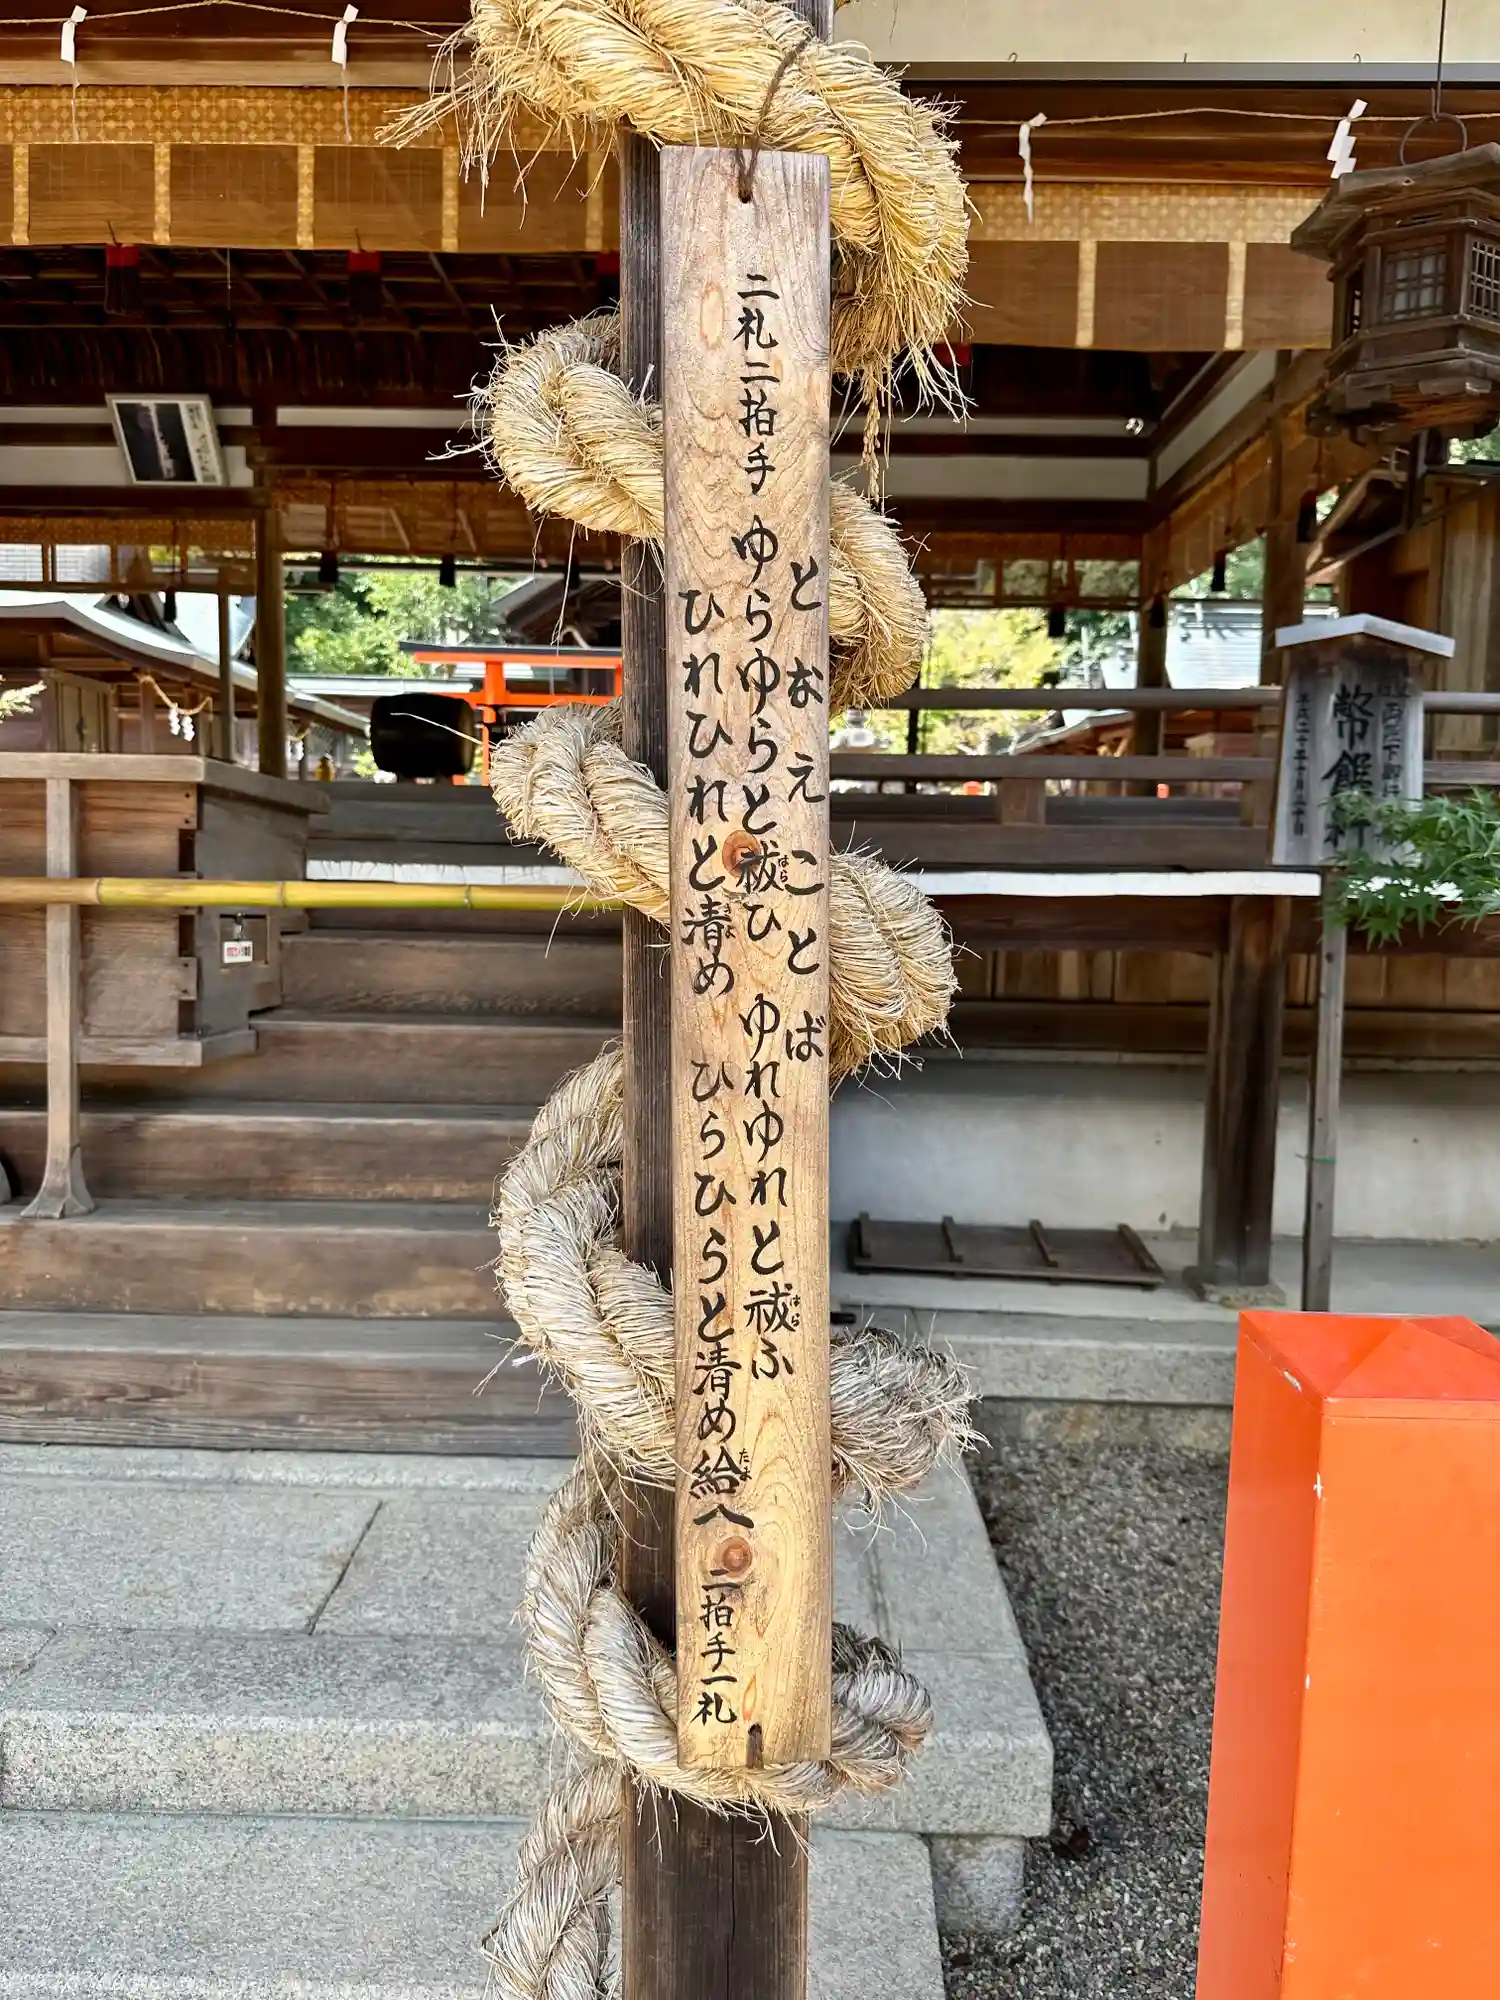 となえことば
二礼二拍手 ゆらゆらと祓ひ ゆれゆれと祓ふ
ひれひれと清め ひらひらと清め給へ 二拍手一礼
はら
はら
きよ
たま
幣饌料